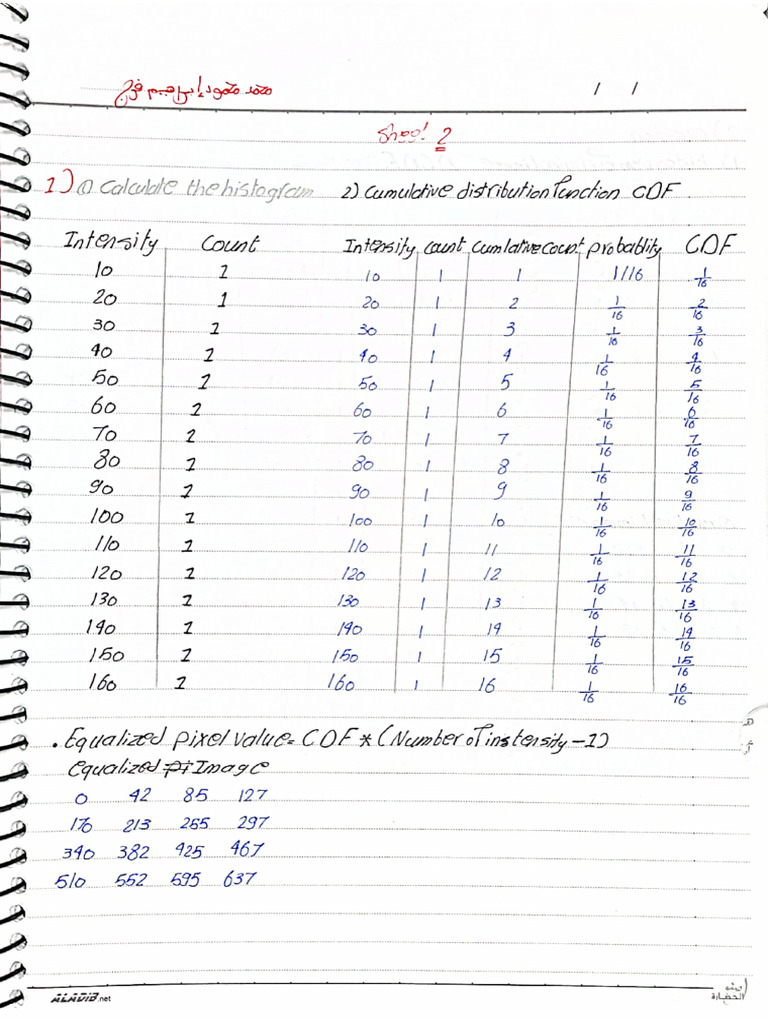 محمد محمود إبراهيم فرج / /
Sheet 2
1) (1) Calculate the histogram 2) Cumulative distribution Function CDF
Intensity Count Intensity count Cumlative count probablity CDF
10 1 10 1 1 1/16 1/16
20 1 20 1 2 1/16 2/16
30 1 30 1 3 1/16 3/16
40 1 40 1 4 1/16 4/16
50 1 50 1 5 1/16 5/16
60 1 60 1 6 1/16 6/16
70 1 70 1 7 1/16 7/16
80 1 80 1 8 1/16 8/16
90 1 90 1 9 1/16 9/16
100 1 100 1 10 1/16 10/16
110 1 110 1 11 1/16 11/16
120 1 120 1 12 1/16 12/16
130 1 130 1 13 1/16 13/16
140 1 140 1 14 1/16 14/16
150 1 150 1 15 1/16 15/16
160 1 160 1 16 1/16 16/16
. Equalized pixel value = CDF * (Number of instensity - 1)
Equalized Image
0 42 85 127
170 213 255 297
340 382 425 467
510 552 595 637
ALADIB.net
الحضارة